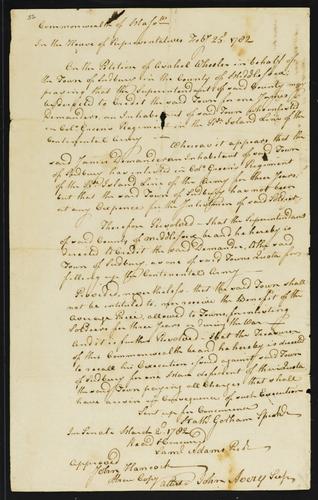 52
Commonwealth of Massts
In the House of Representatives Feby 25 1782
On the Petition of Asahel Wheeler in behalf of
the Town of Sudbury in the County of Middlesex
praying that the Superintendant of said County may
be directed to Credit the said Town for one James
Demander, an Inhabitant of said Town who inlisted
in Colo Greens Regiment in the Rh. Island Line of the
Continental Army
Whereas it appears that the
said James Demander an Inhabitant of said Town
of Sudbury has inlisted in Colo Greens Regiment
of the Rh. Island Line of the Army for three Years
but that the said Town of Sudbury has not been
at any Expence for the Inlistment of said Soldier
Therefore Resolved that the Superintendant
of said County of Middlesex be and he hereby is
directed to Credit the said Demander to the said
Town of Sudbury, as one of said Towns Quota for
filling up the Continental Army
Provided, nevertheless, that the said Town shall
not be intitled to, nor receive the Benefit of the
Average Price, allowed to Towns, for inlisting
Soldiers for three Years or during the War
And it is further Resolved that the Treasurer
of this Commonwealth be and he hereby is directed
to recall his Execution against said Town
of Sudbury for one Man deficient of their Quota
the said Town paying all Charges that shall
have arisen in Consequence of such Execution
Sent up for Concurrence
Nath Gorham Speakr
In Senate March 2d 1782
Read & Concurred
Saml Adams Presd
Approved
John Hancock
True Copy
Attest John Avery Secy